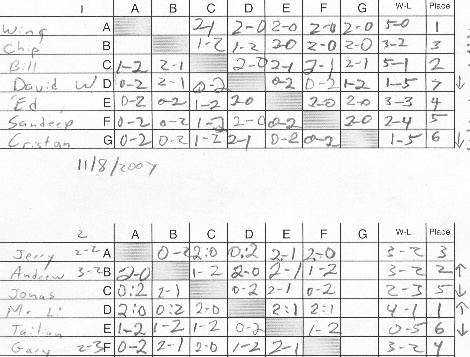 1 A B C D E F G W-L Place
Wing A 2-1 2-0 2-0 2-0 2-0 5-0 1
Chip B 1-2 1-2 2-0 2-0 2-0 3-2 3
Bill C 1-2 2-1 2-0 2-1 2-1 2-1 5-1 2
David W D 0-2 2-1 0-2 0-2 0-2 1-2 1-5 7 ↓
Ed E 0-2 0-2 1-2 2-0 2-0 2-0 3-3 4
Sandeep F 0-2 0-2 1-2 2-0 0-2 2-0 2-4 5
Cristan G 0-2 0-2 1-2 2-1 0-2 0-2 1-5 6 ↓
11/8/2007
2 A B C D E F W-L Place
Jerry 2-2 A 0-2 2:0 0:2 2-1 2-0 3-2 3
Andrew 3-2 B 2-0 1-2 2-0 2-1 1-2 3-2 2 ↑
Jonas C 0:2 2-1 0-2 2-1 0-2 2-3 5 ↓
Mr. Li D 2:0 0:2 2-0 2:1 2:1 4-1 1 ↑
Tailian E 1-2 1-2 1-2 0-2 1-2 0-5 6 ↓
Gary 2-3 F 0-2 2-1 2-0 1-2 2-1 3-2 4